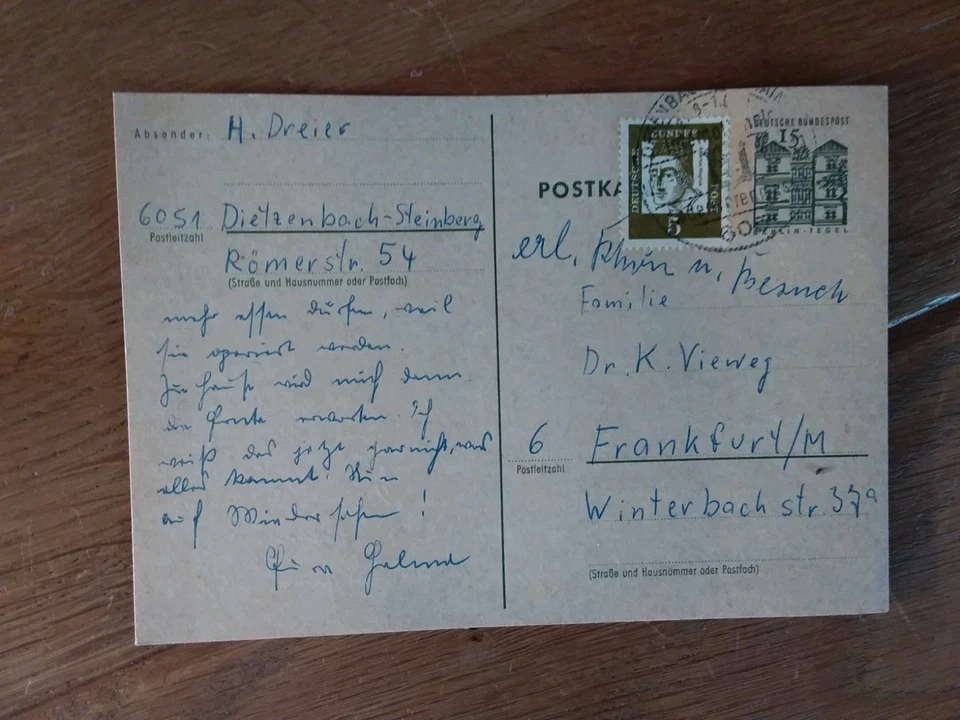 Absender: H. Dreier
6051 Dietzenbach-Steinberg
Postleitzahl
Römerstr. 54
(Straße und Hausnummer oder Postfach)
mehr essen dürfen, weil
sie operiert werden.
Zu Hause wird mich dann
die Ernte erwarten. Ich
weiß das jetzt gar nicht, was
alles kommt. Nun
auf Wiedersehen!
DEUTSCHE BUNDESPOST
15
BERLIN-TEGEL
DEUTSCHE BUNDESPOST
5
POSTKA
erl. u. Besuch
Familie
Dr. K. Vieweg
6 Frankfurt/M
Postleitzahl
Winterbachstr. 37a
(Straße und Hausnummer oder Postfach)